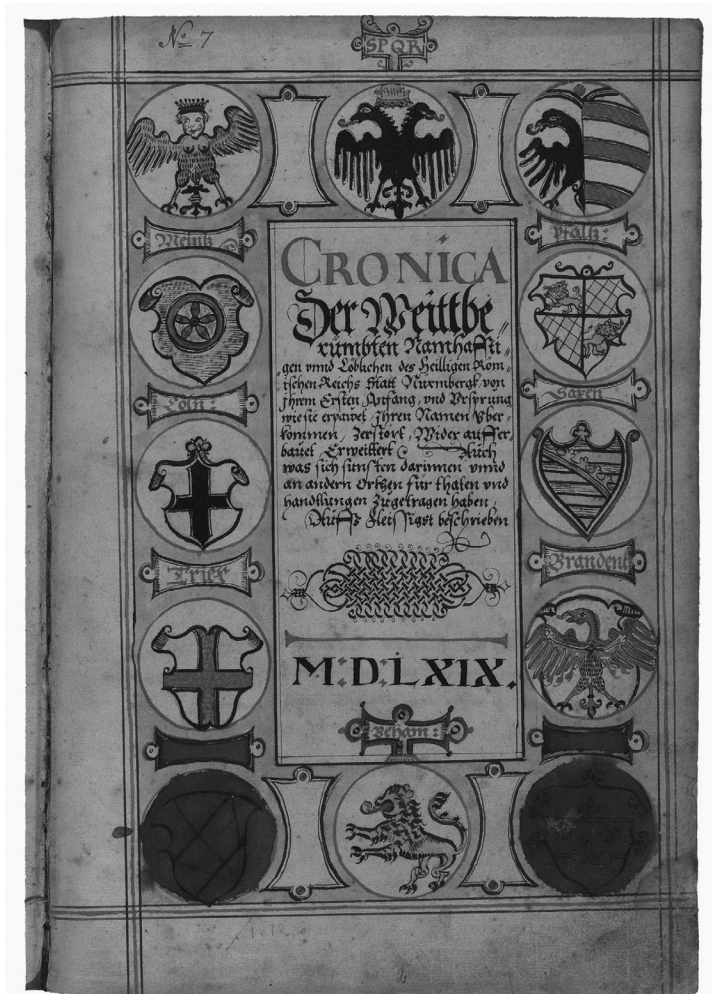 No 7
SPQR
Meintz
Pfaltz:
CRONICA
Der Weittbe„
rümbten Namhaffti„
gen vnnd Löblichen des Heilligen Röm„
ischen Reichs Statt Nürmbergk von
Jhrem Ersten Anfang, vnd Vrsprung
wie sie erpawet, Jhren Namen Vber„
kommen, Zerstört, Wider auffer„
bauet, Erweittert Auch
was sich sunsten darinnen vnnd
an andern Orthen für thaten vnd
handlungen Zugetragen haben,
Auffs Fleissigst beschrieben
Cöln:
Saxen
Trier
Brandenb
M:D:LXIX.
Beham: